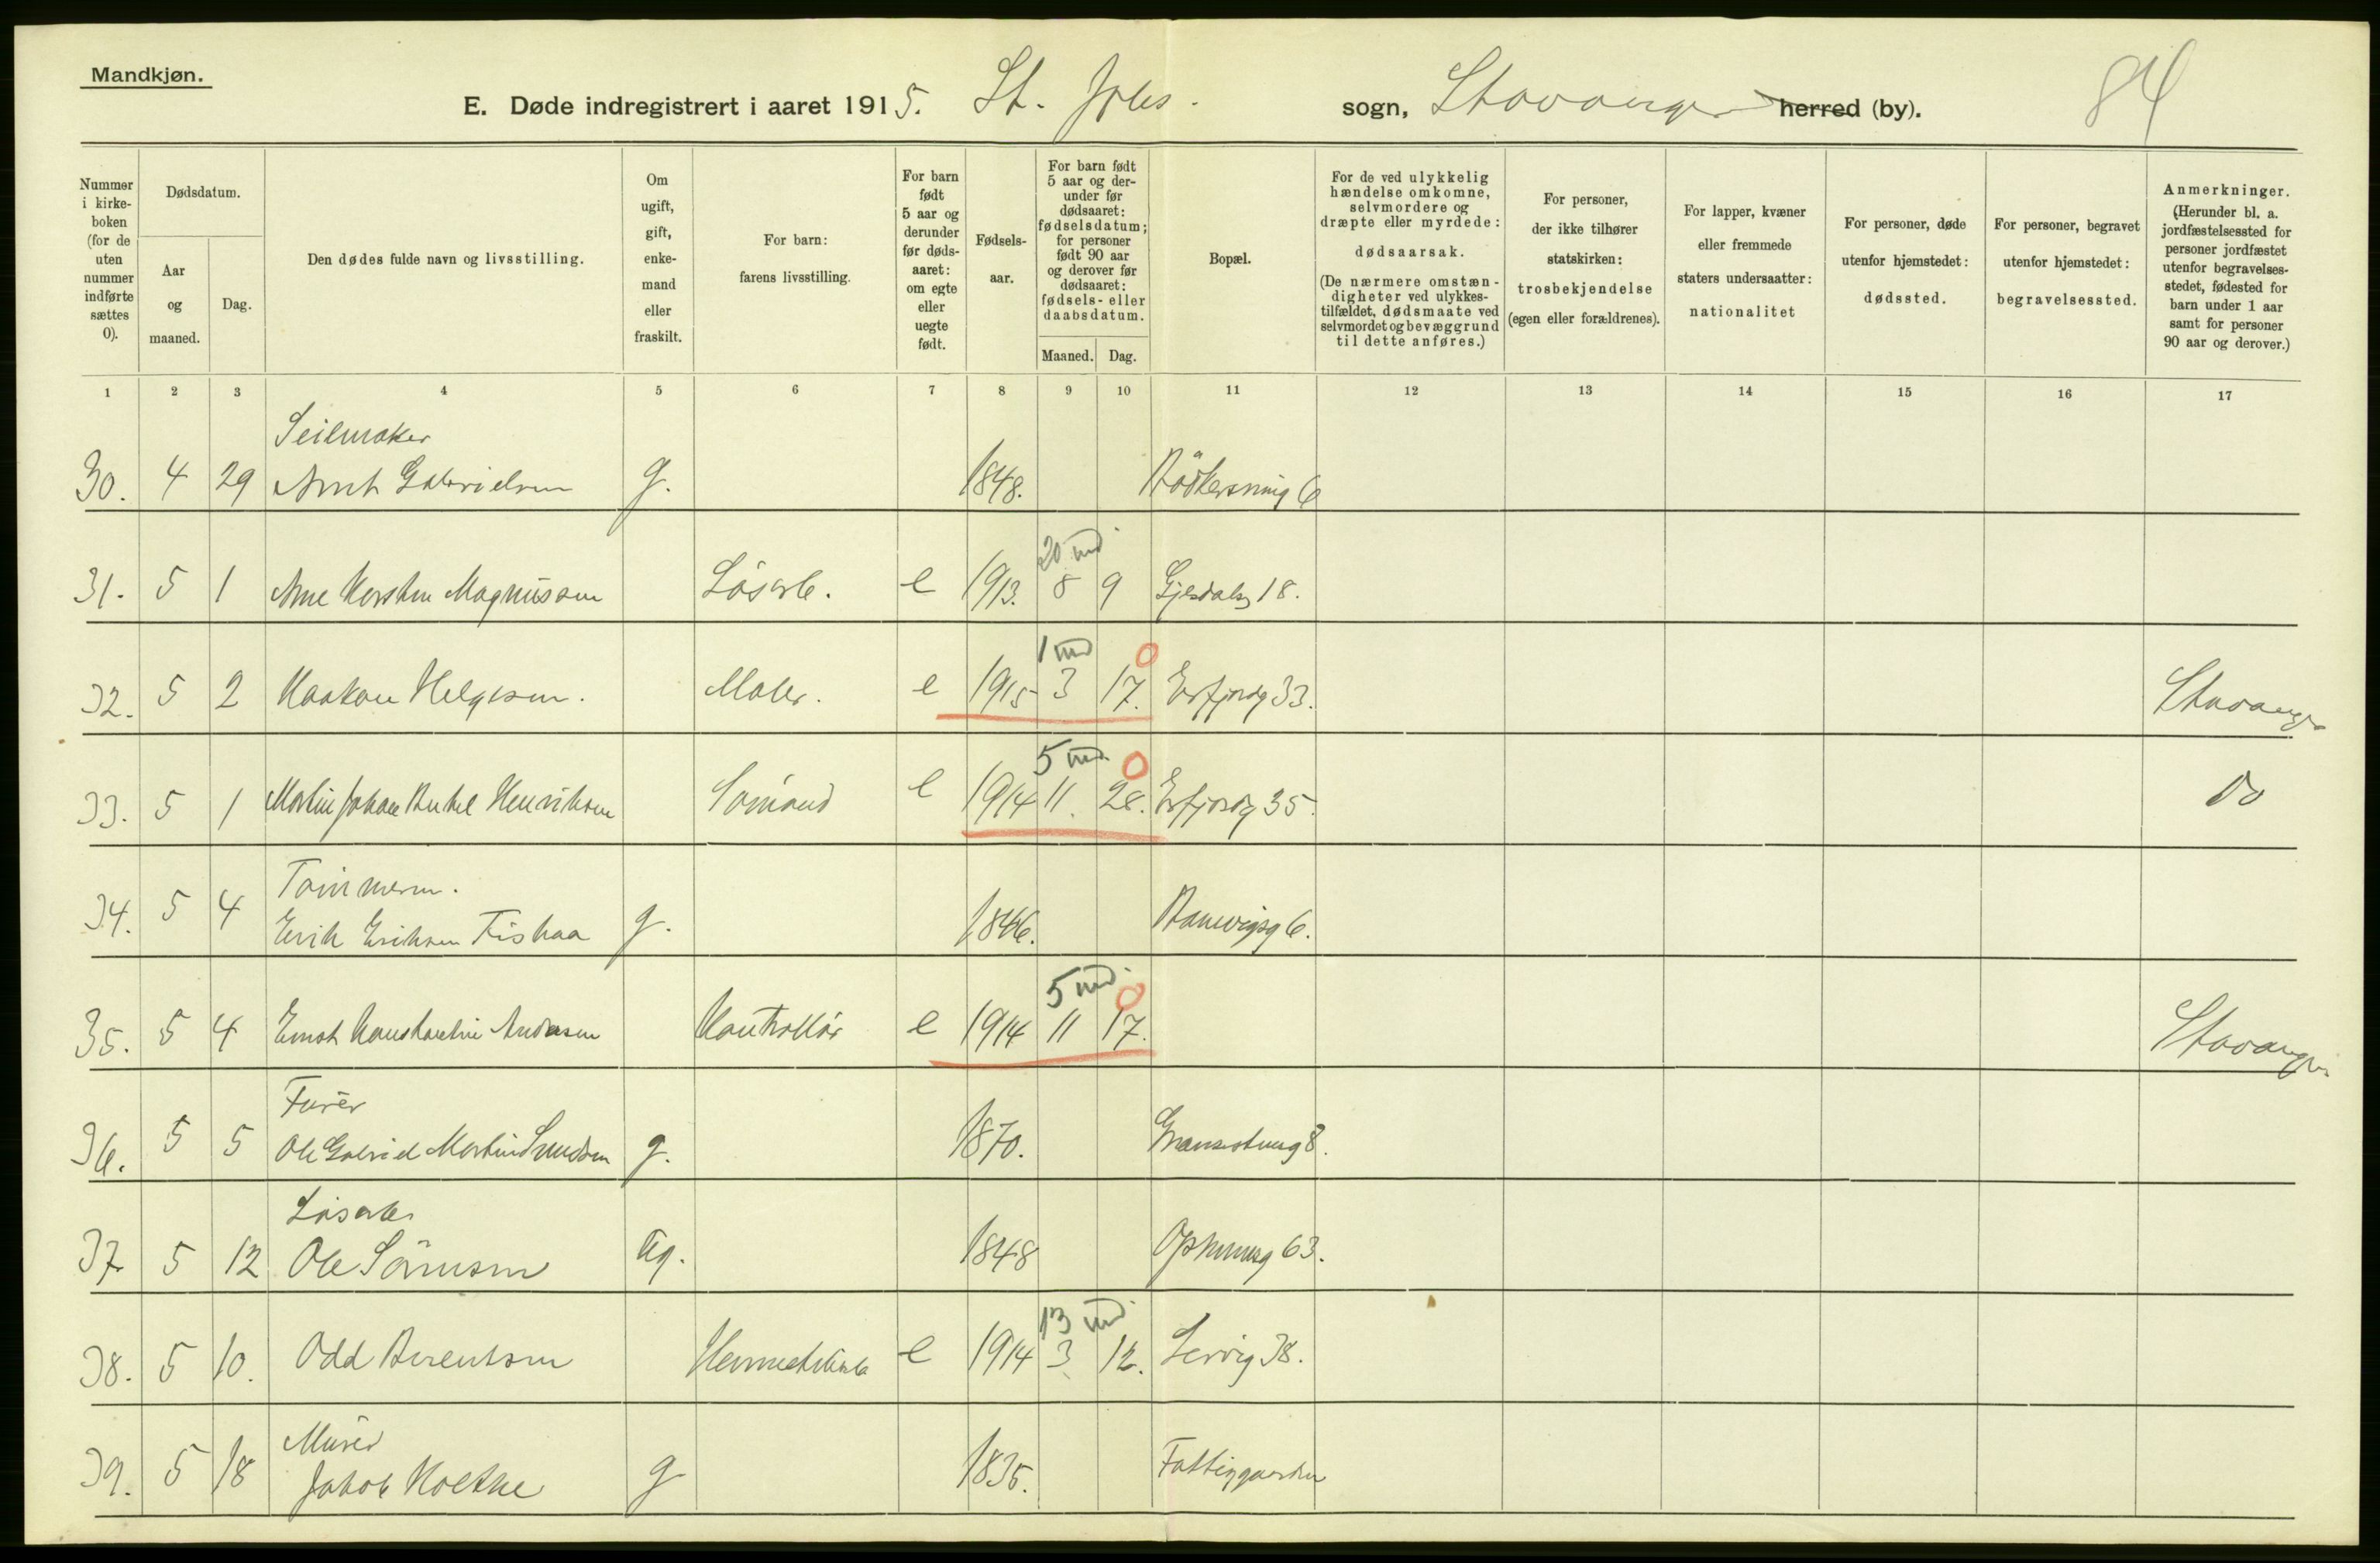 Mandkjøn.
E. Døde indregistrert i aaret 1915. St. Johs. sogn, Stavanger herred (by). 84
Nummer i kirke-boken (for de uten nummer indførte sættes 0).
Dødsdatum.
Aar og maaned.
Dag.
Den dødes fulde navn og livsstilling.
Om ugift, gift, enke-mand eller fraskilt.
For barn: farens livsstilling.
For barn født 5 aar og derunder før døds-aaret: om egte eller uegte født.
Fødsels-aar.
For barn født 5 aar og der-under før dødsaaret: fødselsdatum; for personer født 90 aar og derover før dødsaaret: fødsels- eller daabsdatum.
Maaned. Dag.
Bopæl.
For de ved ulykkelig hændelse omkomne, selvmordere og dræpte eller myrdede: dødsaarsak. (De nærmere omstæn-digheter ved ulykkes-tilfældet, dødsmaate ved selvmordet og bevæggrund til dette anføres.)
For personer, der ikke tilhører statskirken: trosbekjendelse (egen eller forældrenes).
For lapper, kvæner eller fremmede staters undersaatter: nationalitet
For personer, døde utenfor hjemstedet: dødssted.
For personer, begravet utenfor hjemstedet: begravelsessted.
Anmerkninger. (Herunder bl. a. jordfæstelsessted for personer jordfæstet utenfor begravelses-stedet, fødested for barn under 1 aar samt for personer 90 aar og derover.)
1 2 3 4 5 6 7 8 9 10 11 12 13 14 15 16 17
Seilmaker
30. 4 29 Arnt Gabrielsen g. 1848. 6
20 md
31. 5 1 Arne Karsten Magnussen Løsarb. e 1913. 8 9 Gjesdalsg 18.
1 md 0
32. 5 2 Haakon Helgesen. Maler. e 1915 3 17. Erfjordg 33. Stavanger
5 md. 0
33. 5 1 Martin Johan Bertel Henriksen Sømand e 1914 11. 28. Erfjordg 35. Do
Tømmerm.
34. 5 4 Erik Eriksen Fiskaa g. 1846. Banevigsg 6.
5 md. 0
35. 5 4 Ernst Konstantin Andersen Kontrollør e 1914 11 17. Stavanger
Furér
36. 5 5 Ole Gabriel Martin g. 1870. 8.
Løsarb.
37. 5 12 Ole Sørensen Ug. 1848 63.
13 md.
38. 5 10. Odd Berentsen Hermetikarb e 1914 3 12. Lervig 38.
Murer
39. 5 18 Jakob Holthe g 1835. Fattiggaarden